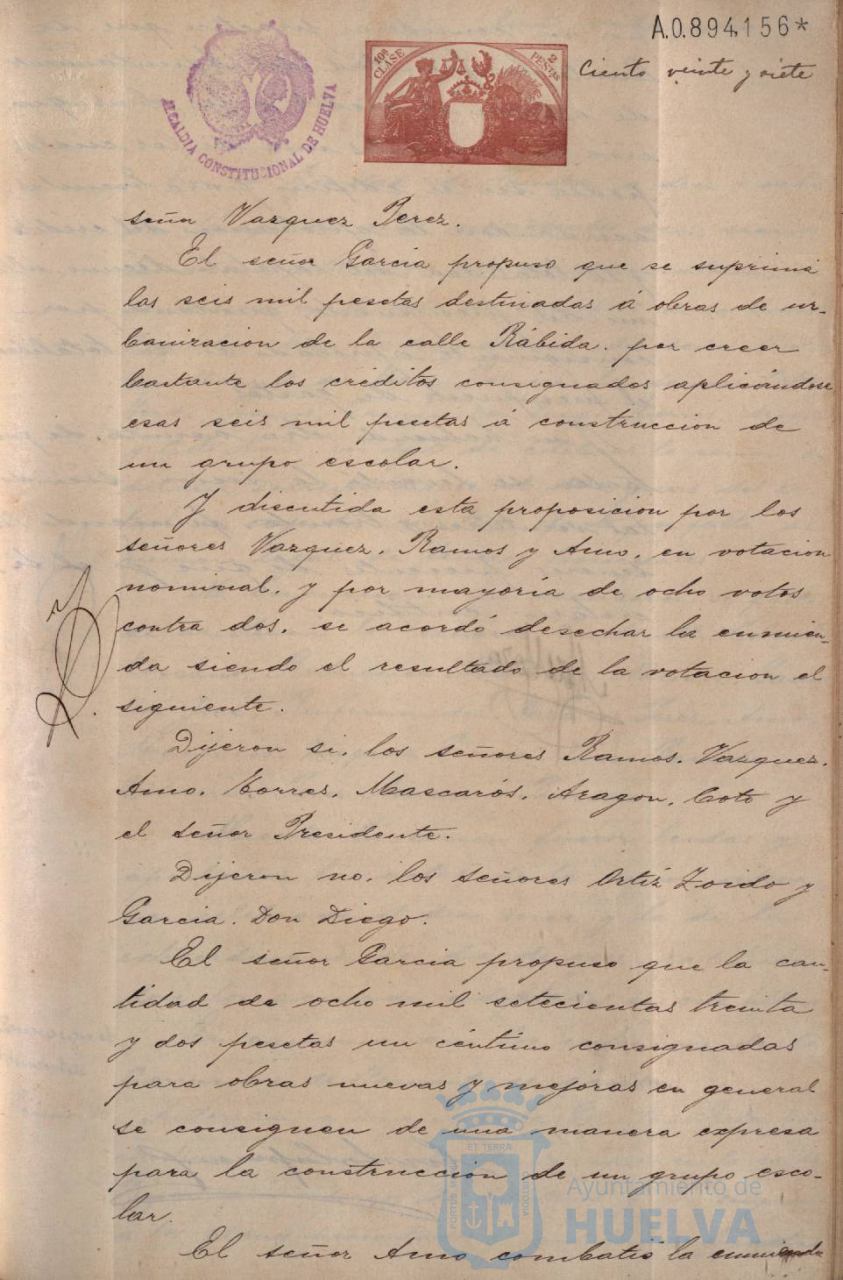 A.0.894,156*
10ª CLASE
2 PESETAS
Ciento veinte y siete
ALCALDIA CONSTITUCIONAL DE HUELVA
señor Vazquez Perez.
El señor Garcia propuso que se suprima
las seis mil pesetas destinadas á obras de ur-
banizacion de la calle Rábida. por creer
bastante los créditos consignados aplicándose
esas seis mil pesetas á construccion de
un grupo escolar.
Y discutida esta proposicion por los
señores Vazquez. Ramos y Amo. en votacion
nominal. y por mayoría de ocho votos
contra dos. se acordó desechar la enmien-
da siendo el resultado de la votacion el
siguiente.
Dijeron si. los señores Ramos. Vazquez.
Amo. Torres. Mascarós. Aragon. Coto y
el señor Presidente.
Dijeron no. los señores Ortiz Zoido y
Garcia. Don Diego.
El señor Garcia propuso que la can-
tidad de ocho mil setecientas treinta
y dos pesetas un céntimo consignadas
para obras nuevas y mejoras en general
se consignen de una manera expresa
para la construccion de un grupo esco-
lar.
El señor Amo combatió la enmienda
PORTUS MARIS ET TERRA CUSTODIA
Ayuntamiento de
HUELVA